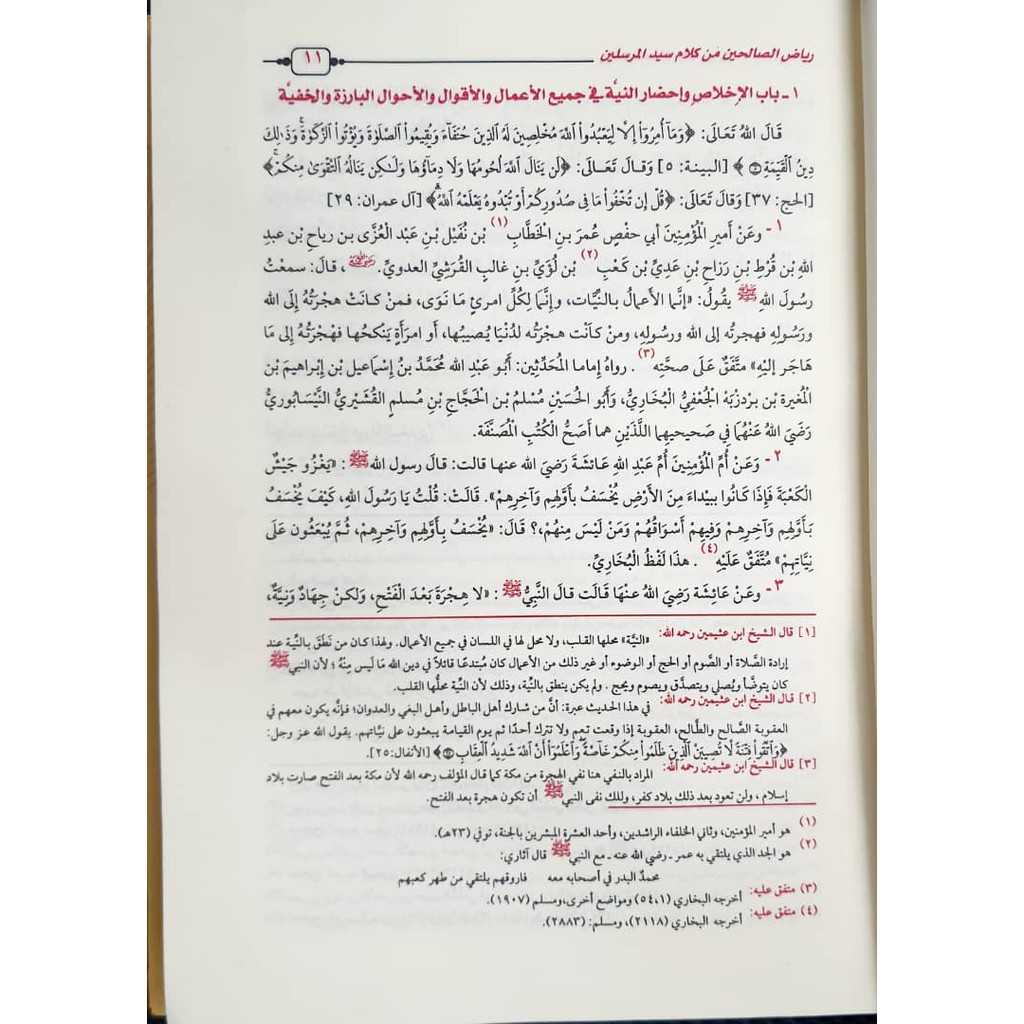 رياض الصالحين من كلام سيد المرسلين
١١
١ - باب الإخلاص وإحضار النيَّة في جميع الأعمال والأقوال والأحوال البارزة والخفيَّة
قَالَ اللهُ تَعَالَى: ﴿وَمَآ أُمِرُوٓاْ إِلَّا لِيَعۡبُدُواْ ٱللَّهَ مُخۡلِصِينَ لَهُ ٱلدِّينَ حُنَفَآءَ وَيُقِيمُواْ ٱلصَّلَوٰةَ وَيُؤۡتُواْ ٱلزَّكَوٰةَۚ وَذَٰلِكَ
دِينُ ٱلۡقَيِّمَةِ ۝٥﴾ [البينة: ٥] وَقالَ تَعَالَى: ﴿لَن يَنَالَ ٱللَّهَ لُحُومُهَا وَلَا دِمَآؤُهَا وَلَٰكِن يَنَالُهُ ٱلتَّقۡوَىٰ مِنكُمۡۚ﴾
[الحج: ٣٧] وَقَالَ تَعَالَى: ﴿قُلۡ إِن تُخۡفُواْ مَا فِي صُدُورِكُمۡ أَوۡ تُبۡدُوهُ يَعۡلَمۡهُ ٱللَّهُۗ﴾ [آل عمران: ٢٩]
١ - وعَنْ أَميرِ الْمُؤْمِنِينَ أبي حفْصٍ عُمرَ بنِ الْخَطَّابِ (١) بْن نُفَيْل بْنِ عَبْد الْعُزَّى بن رياح بْن عبدِ
اللهِ بْن قُرْطِ بْنِ رَزاحِ بْنِ عَدِيِّ بْن كَعْبِ (٢) بْن لُؤَيِّ بنِ غالبٍ القُرَشِيِّ العدويِّ. رضي الله عنه، قالَ: سمعْتُ
رسُولَ اللهِ ﷺ يقُولُ: «إنَّما الأَعمالُ بالنِّيَّات، وإِنَّمَا لِكُلِّ امرئٍ مَا نَوَى، فمنْ كانَتْ هجْرَتُهُ إِلَى الله
ورَسُولِهِ فهجرتُه إلى الله ورسُولِهِ، ومنْ كاَنْت هجْرَتُه لدُنْيَا يُصيبُها، أَو امرَأَةٍ يَنْكحُها فهْجْرَتُهُ إلى مَا
هَاجَر إليْهِ» متَّفَقٌ عَلَى صحَّتِه (٣). رواهُ إِماما المُحَدِّثِين: أَبُو عَبْدِ الله مُحَمَّدُ بنُ إِسْمَاعيل بْن إِبْراهيمَ بْن
المُغيرة بْن برْدزْبَهْ الْجُعْفِيُّ الْبُخَارِيُّ، وَأَبُو الحُسَيْنِ مُسْلمُ بن الْحَجَّاجِ بْنِ مُسلمٍ القُشَيْريُّ النَّيْسَابُوريُّ
رَضَيَ اللهُ عَنْهُمَا فِي صَحيحيهِما اللَّذَيْنِ هما أَصَحُّ الْكُتُبِ الْمُصَنَّفَة.
٢ - وَعَنْ أُمِّ الْمُؤْمِنِينَ أُمِّ عَبْدِ اللهِ عَائشَةَ رَضيَ الله عنها قالت: قالَ رسول الله ﷺ: «يَغْزُو جَيْشٌ
الْكَعْبَةَ فَإِذَا كَانُوا ببيْداءَ مِنَ الأَرْضِ يُخْسَفُ بأَوَّلِهِم وَآخِرِهِمْ». قَالَتْ: قُلْتُ يَا رَسُولَ اللهِ، كَيْفَ يُخْسَفُ
بَأَوَّلِهِم وَآخِرِهِمْ وَفِيهِمْ أَسْوَاقُهُمْ وَمَنْ لَيْسَ مِنهُمْ،؟ قَالَ: «يُخْسَفُ بِأَوَّلِهِم وَآخِرِهِمْ، ثُمَّ يُبْعَثُون عَلَى
نِيَّاتِهِمْ» مُتَّفَقٌ عَلَيْهِ (٤). هذَا لَفْظُ الْبُخَارِيِّ.
٣ - وعَنْ عَائِشَة رَضِيَ اللهُ عنْهَا قَالَت قالَ النَّبِيُّ ﷺ: «لا هِجْرَةَ بَعْدَ الْفَتْحِ، وَلكنْ جِهَادٌ وَنِيَّةٌ،
[١] قال الشيخ ابن عثيمين رحمه الله: «النيَّة» محلها القلب، ولا محل لها في اللسان في جميع الأعمال. ولهذا كان من نَطَقَ بالنِّية عند
إرادة الصَّلاة أو الصَّوم أو الحج أو الوضوء أو غير ذلك من الأعمال كان مُبتدعًا قائلاً في دين الله مَا لَيس مِنْهُ ؛ لأن النبي ﷺ
كان يتوضَّأ ويُصلي ويتصدَّق ويصوم ويحج. ولم يكن ينطق بالنِّية، وذلك لأن النِّية محلُّها القلب.
[٢] قال الشيخ ابن عثيمين رحمه الله: في هذا الحديث عبرة: أنَّ من شارك أهل الباطل وأهل البغي والعدوان؛ فإنَّه يكون معهم في
العقوبة الصَّالح والطَّالح، العقوبة إذا وقعت تَعم ولا تترك أحدًا ثم يوم القيامة يبعثون على نيَّاتهم. يقول الله عز وجل:
﴿وَٱتَّقُواْ فِتۡنَةٗ لَّا تُصِيبَنَّ ٱلَّذِينَ ظَلَمُواْ مِنكُمۡ خَآصَّةٗۖ وَٱعۡلَمُوٓاْ أَنَّ ٱللَّهَ شَدِيدُ ٱلۡعِقَابِ ۝٢٥﴾ [الأنفال: ٢٥].
[٣] قال الشيخ ابن عثيمين رحمه الله: المراد بالنفي هنا نفي الهجرة من مكة كما قال المؤلف رحمه الله لأن مكة بعد الفتح صارت بلاد
إسلام، ولن تعود بعد ذلك بلاد كفر، وللك نفى النبي ﷺ أن تكون هجرة بعد الفتح.
(١) هو أمير المؤمنين، وثاني الخلفاء الراشدين، وأحد العشرة المبشرين بالجنة، توفي (٢٣هـ).
(٢) هو الجد الذي يلتقي به عمر - رضي الله عنه - مع النبي ﷺ قال آثاري:
محمدٌ البدر في أصحابه معه فاروقهم يلتقي من طهر كعبهم
(٣) متفق عليه: أخرجه البخاري (٥٤،١) ومواضع أخرى،ومسلم (١٩٠٧).
(٤) متفق عليه: أخرجه البخاري (٢١١٨)، ومسلم: (٢٨٨٣).